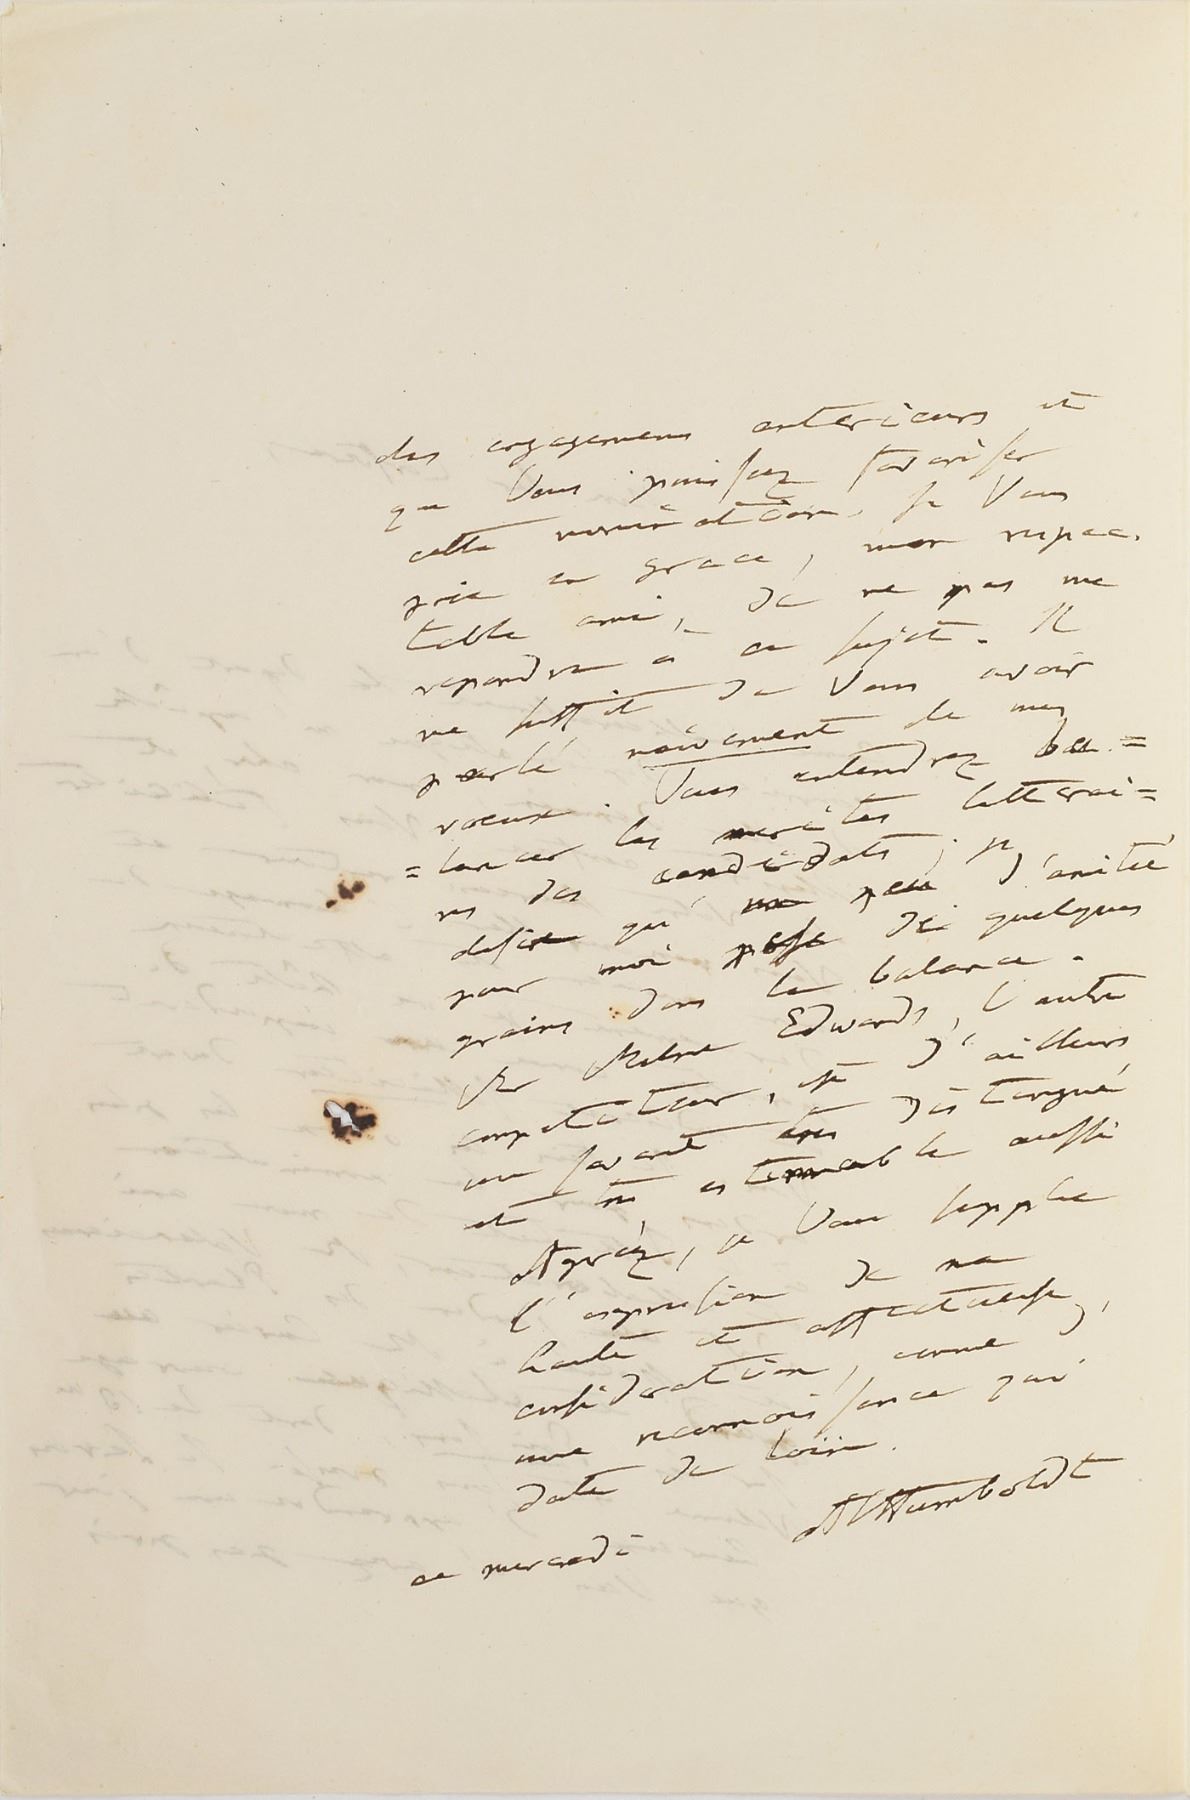 des engagemens anterieurs et
que Vous puissiez favoriser
cette nomination. Je Vous
prie en grace, mon respec-
table ami, de ne pas me
repondre à ce sujet. Il
me suffit de Vous avoir
parlé naivement de mes
voeux. Vous entendrez ba=
=lancer les merites litterai=
res des candidats; je
desire qu'un peu d'amitié
pour moi pese de quelques
grains dans la balance.
Mr Milne Edwards, l'autre
competiteur, est d'ailleurs
un savant tres distingué
et tres estimable aussi
Agréez, je Vous supplie
l'expression de ma
haute et affectueuse
consideration, comme d'
une reconnoissance qui
date de loin.
AlHumboldt
ce mercredi